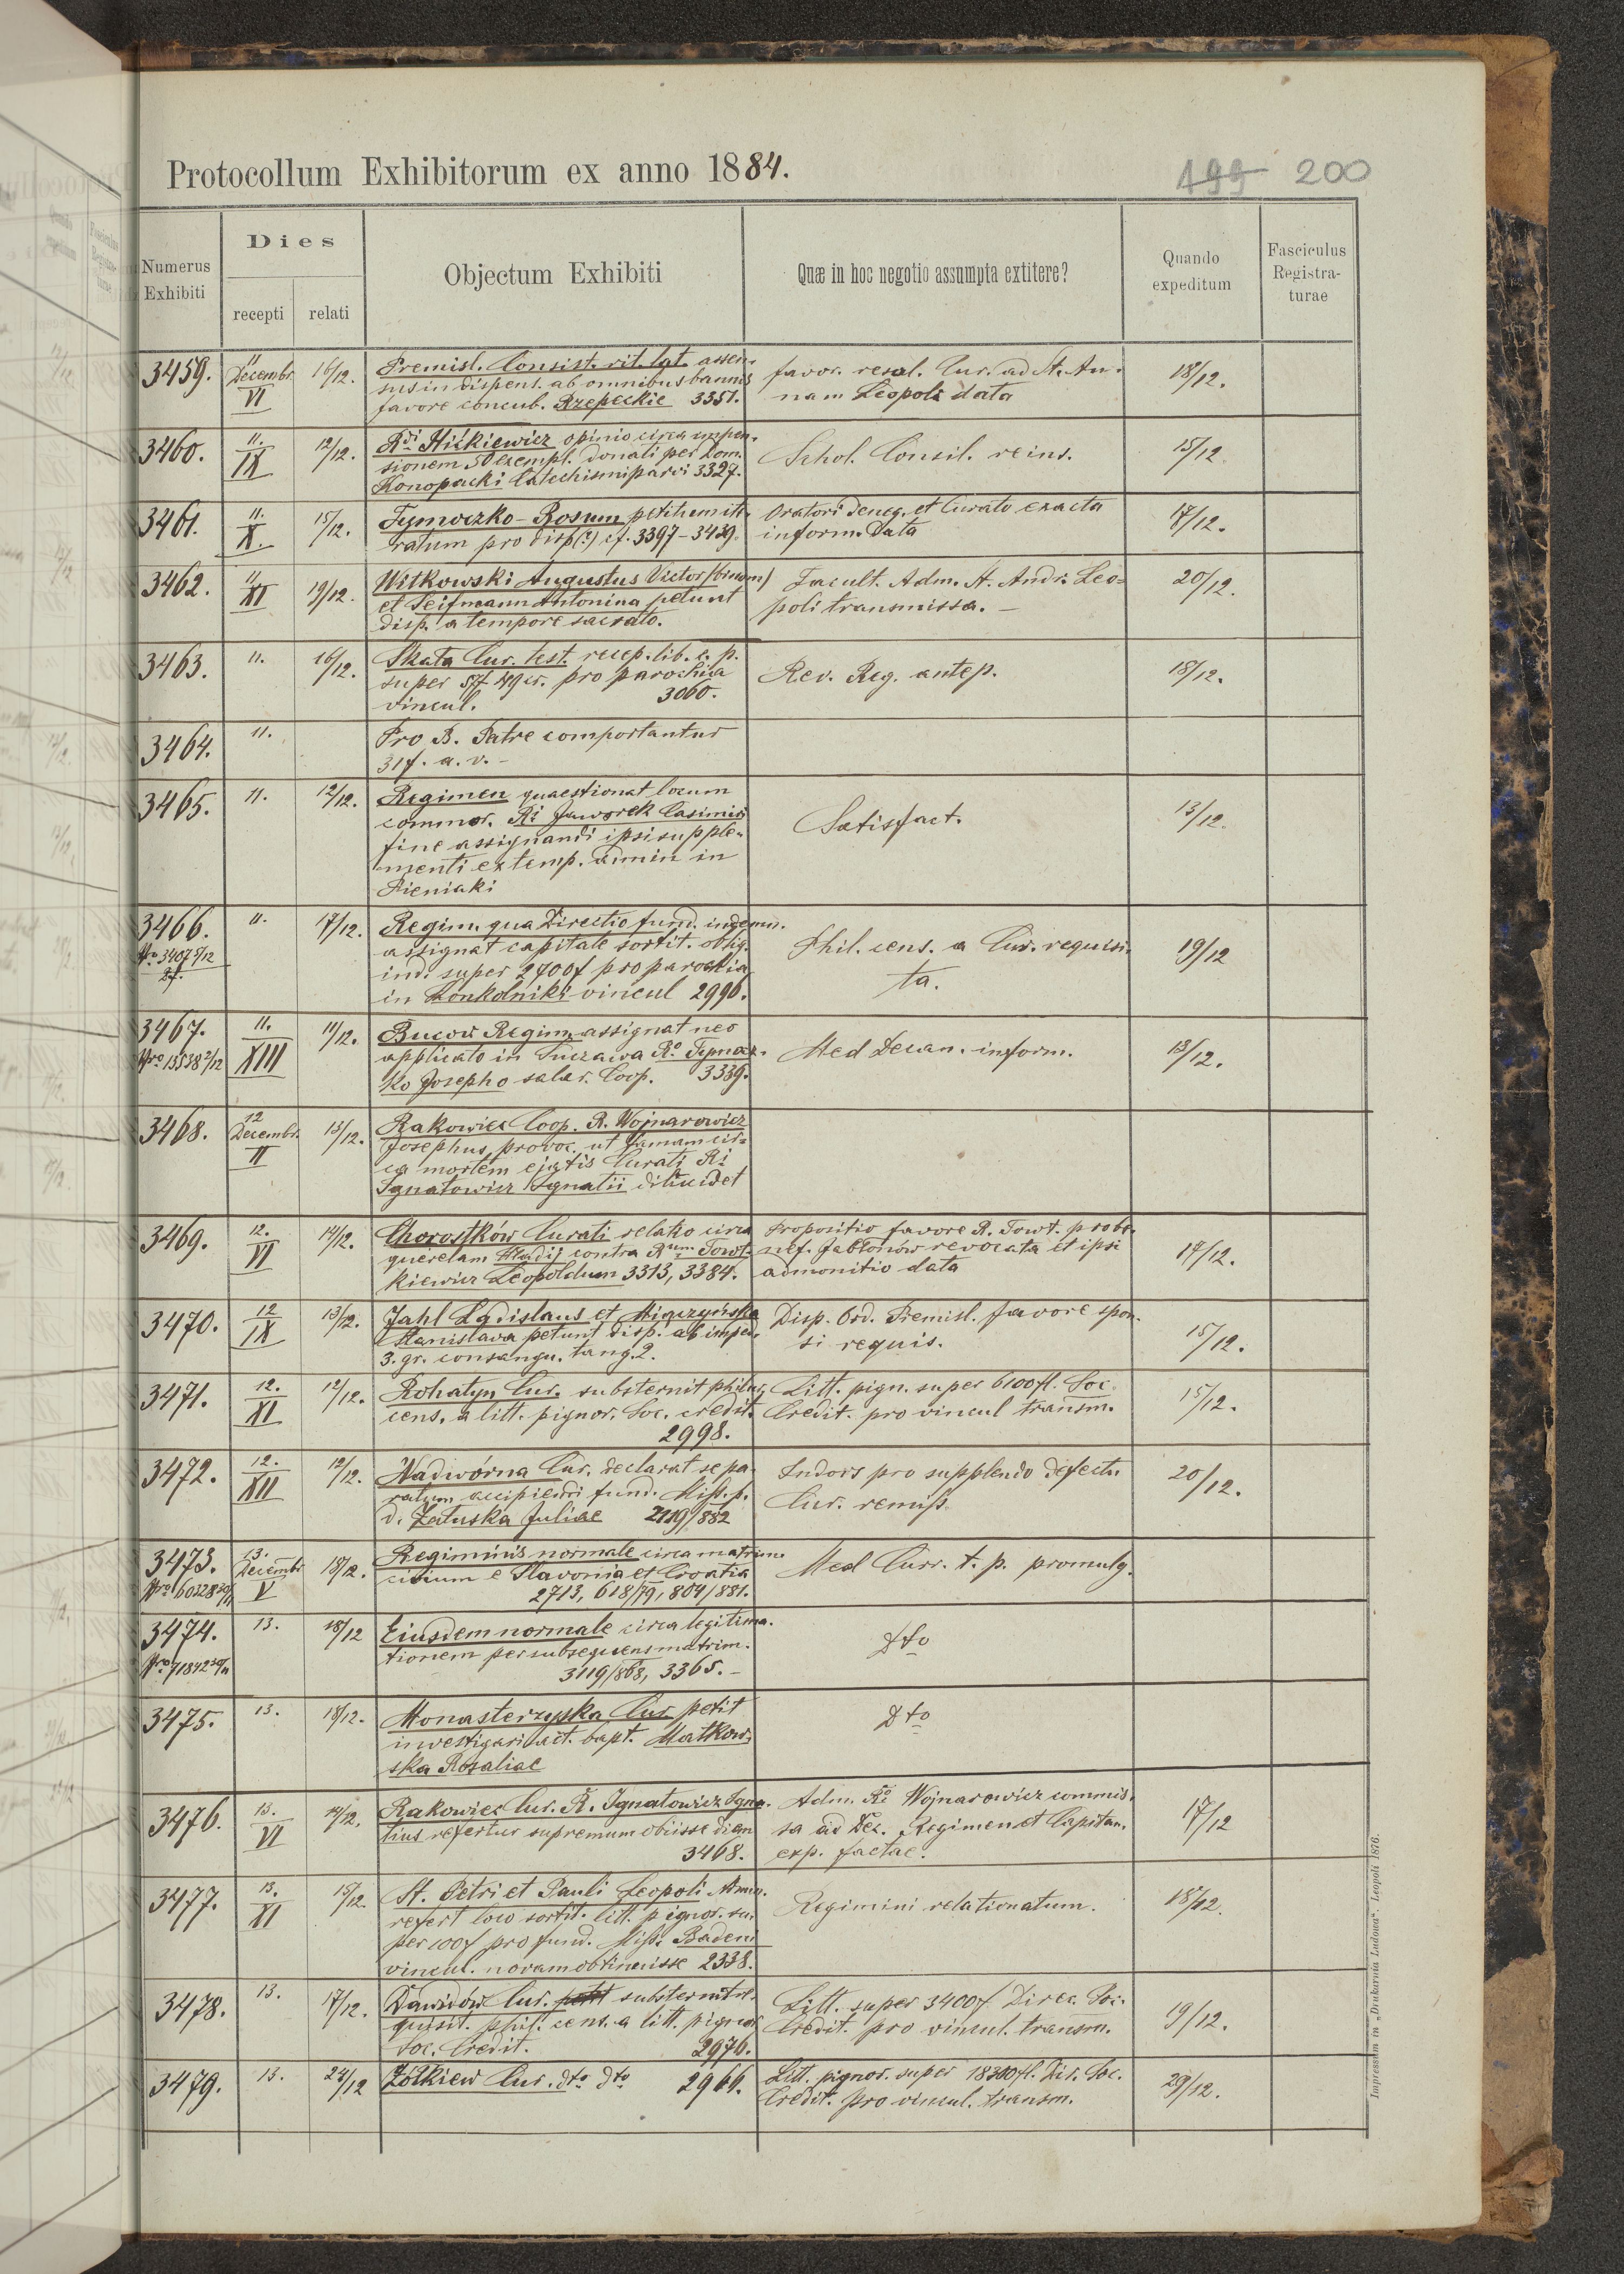 Protocollum Exhibitorum ex anno 1884.
199 200
Numerus Exhibiti
Dies
recepti
relati
Objectum Exhibiti
Quæ in hoc negotio assumpta extitere?
Quando expeditum
Fasciculus Registra-
turae
3459. 11 Decembr. VI 16/12.
Premisl. Consist. rit. lat. assen-
sus in dispens. ab omnibus bannis
favore concub. Rzepeckie 3351.
favor. resol. Cur. ad St. An-
nam Leopoli data
18/12.
3460. 11. IX 12/12.
Rdi Hickiewicz opinio circa impen-
sionem 50 exempl. donati per Dom.
Konopacki Catechismi parvi 3327.
Schol. Consil. reins.
15/12.
3461. 11. X. 15/12.
Tymoczko - Rosum petitum ite-
ratum pro disp(?) cf. 3397-3439.
Oratori deneg. et Curato exacta
inform. data
17/12.
3462. 11. XI 19/12.
Witkowski Augustus Victor (binom)
et Seifmann Antonina petunt
disp. a tempore sacrato.
Facult. Adm. St. Andr. Leo-
poli transmissa. -
20/12.
3463. 11. 16/12.
Skata Cur. test. recep. lib. c. p.
super 57f 49cr. pro parochia
vincul. 3060.
Rev. Reg. antep.
18/12.
3464. 11.
Pro B. Patre comportantur
31f. a. v. -
3465. 11. 12/12.
Regimen quaestionat locum
commor. Ri Jaworek Casimiri
fine assignandi ipsi supple-
menti ex temp. admin in
Pieniaki
Satisfact.
13/12.
3466. 11. 17/12.
Nro 3407 5/12
Regim. qua Directio fund. indemn.
assignat capitale sortit. oblig.
ind. super 2700f pro parochia
in Konkolniki vincul 2996.
Phil. cens. a Cur. requisi-
ta.
19/12
3467. 11. XIII 11/12.
Nro 13538 2/12
Bucow Regim. assignat neo
applicato in Suczawa Ro Tymocz-
ko Josepho salar. Coop. 3339.
Med Decan. inform.
13/12.
3468. 12 Decembr. II 15/12.
Rakowiec Coop. R. Wojnarowicz
Josephus, provoc. ut famam cir-
ca mortem ejatis Curati Ri
Ignatowicz Ignatii dilucidet
3469. 12. VI 14/12.
Chorostków Curati relatio circa
querelam contra Rum Towt-
kiewicz Leopoldum 3313, 3384.
Propositio favore R. Towt. pro be-
nef. Jabłonów revocata et ipsi
admonitio data
17/12.
3470. 12 IX 13/12.
Jahl Ladislaus et Miączyńska
Stanislava petunt disp. ab imped.
3. gr. consangu. tang. 2.
Disp. Ord. Premisl. favore spon-
si requis.
15/12.
3471. 12. XI 12/12.
Rohatyn Cur. substernit philur.
cens. a litt. pignor. Soc. credit.
2998.
Litt. pign. super 6100fl. Soc.
Credit. pro vincul transm.
15/12.
3472. 12. XII 12/12.
Nadwórna Cur. declarat se pa-
ratum accipiendi fund. Miss. p.
d. Załuska Juliae 2119/882
Indors pro supplendo defectu
Cur. remiss.
20/12.
3473. 13. Decembr V 18/12.
Nro 60328 30/11
Regiminis normale circa matrim.
civium e Slavonia et Croatia
2713, 618/79, 804/881.
Med Curr. t. p. promulg.
3474. 13. 18/12
Nro 71842 30/11
Eiusdem normale circa legitima-
tionem per subsequens matrim.
3119/868, 3365. -
Dto
3475. 13. 18/12.
Monasterzyska Cur. petit
investigari act. bapt. Matkow-
ska Rosaliae
Dto
3476. 13. VI 14/12.
Rakowiec Cur. R. Ignatowicz Igna-
tius refertur supremum obiisse diem
3468.
Adm. Ro Wojnarowicz commis-
sa ad Dec. Regimen et Capitan.
exp. factae.
17/12
3477. 13. XI 15/12.
St. Petri et Pauli Leopoli Admin.
refert loco sortit. litt. pignor. su-
per 100f pro fund. Miss. Badeni
vincul. novam obtinuisse 2338.
Regimini relationatum.
18/12.
3478. 13. 17/12.
Dawidów Cur. petit substernit re-
quisit. phil. cens. a litt. pignor
Soc. Credit. 2976.
Litt. super 3400f Direc. Soc.
Credit. pro vincul. transm.
19/12.
3479. 13. 24/12
Żółkiew Cur. dto dto 2966.
Litt. pignor. super 18300fl. Dir. Soc.
Credit. pro vincul. transm.
29/12.
Impressum in „Drukarnia Ludowa“. Leopoli 1876.